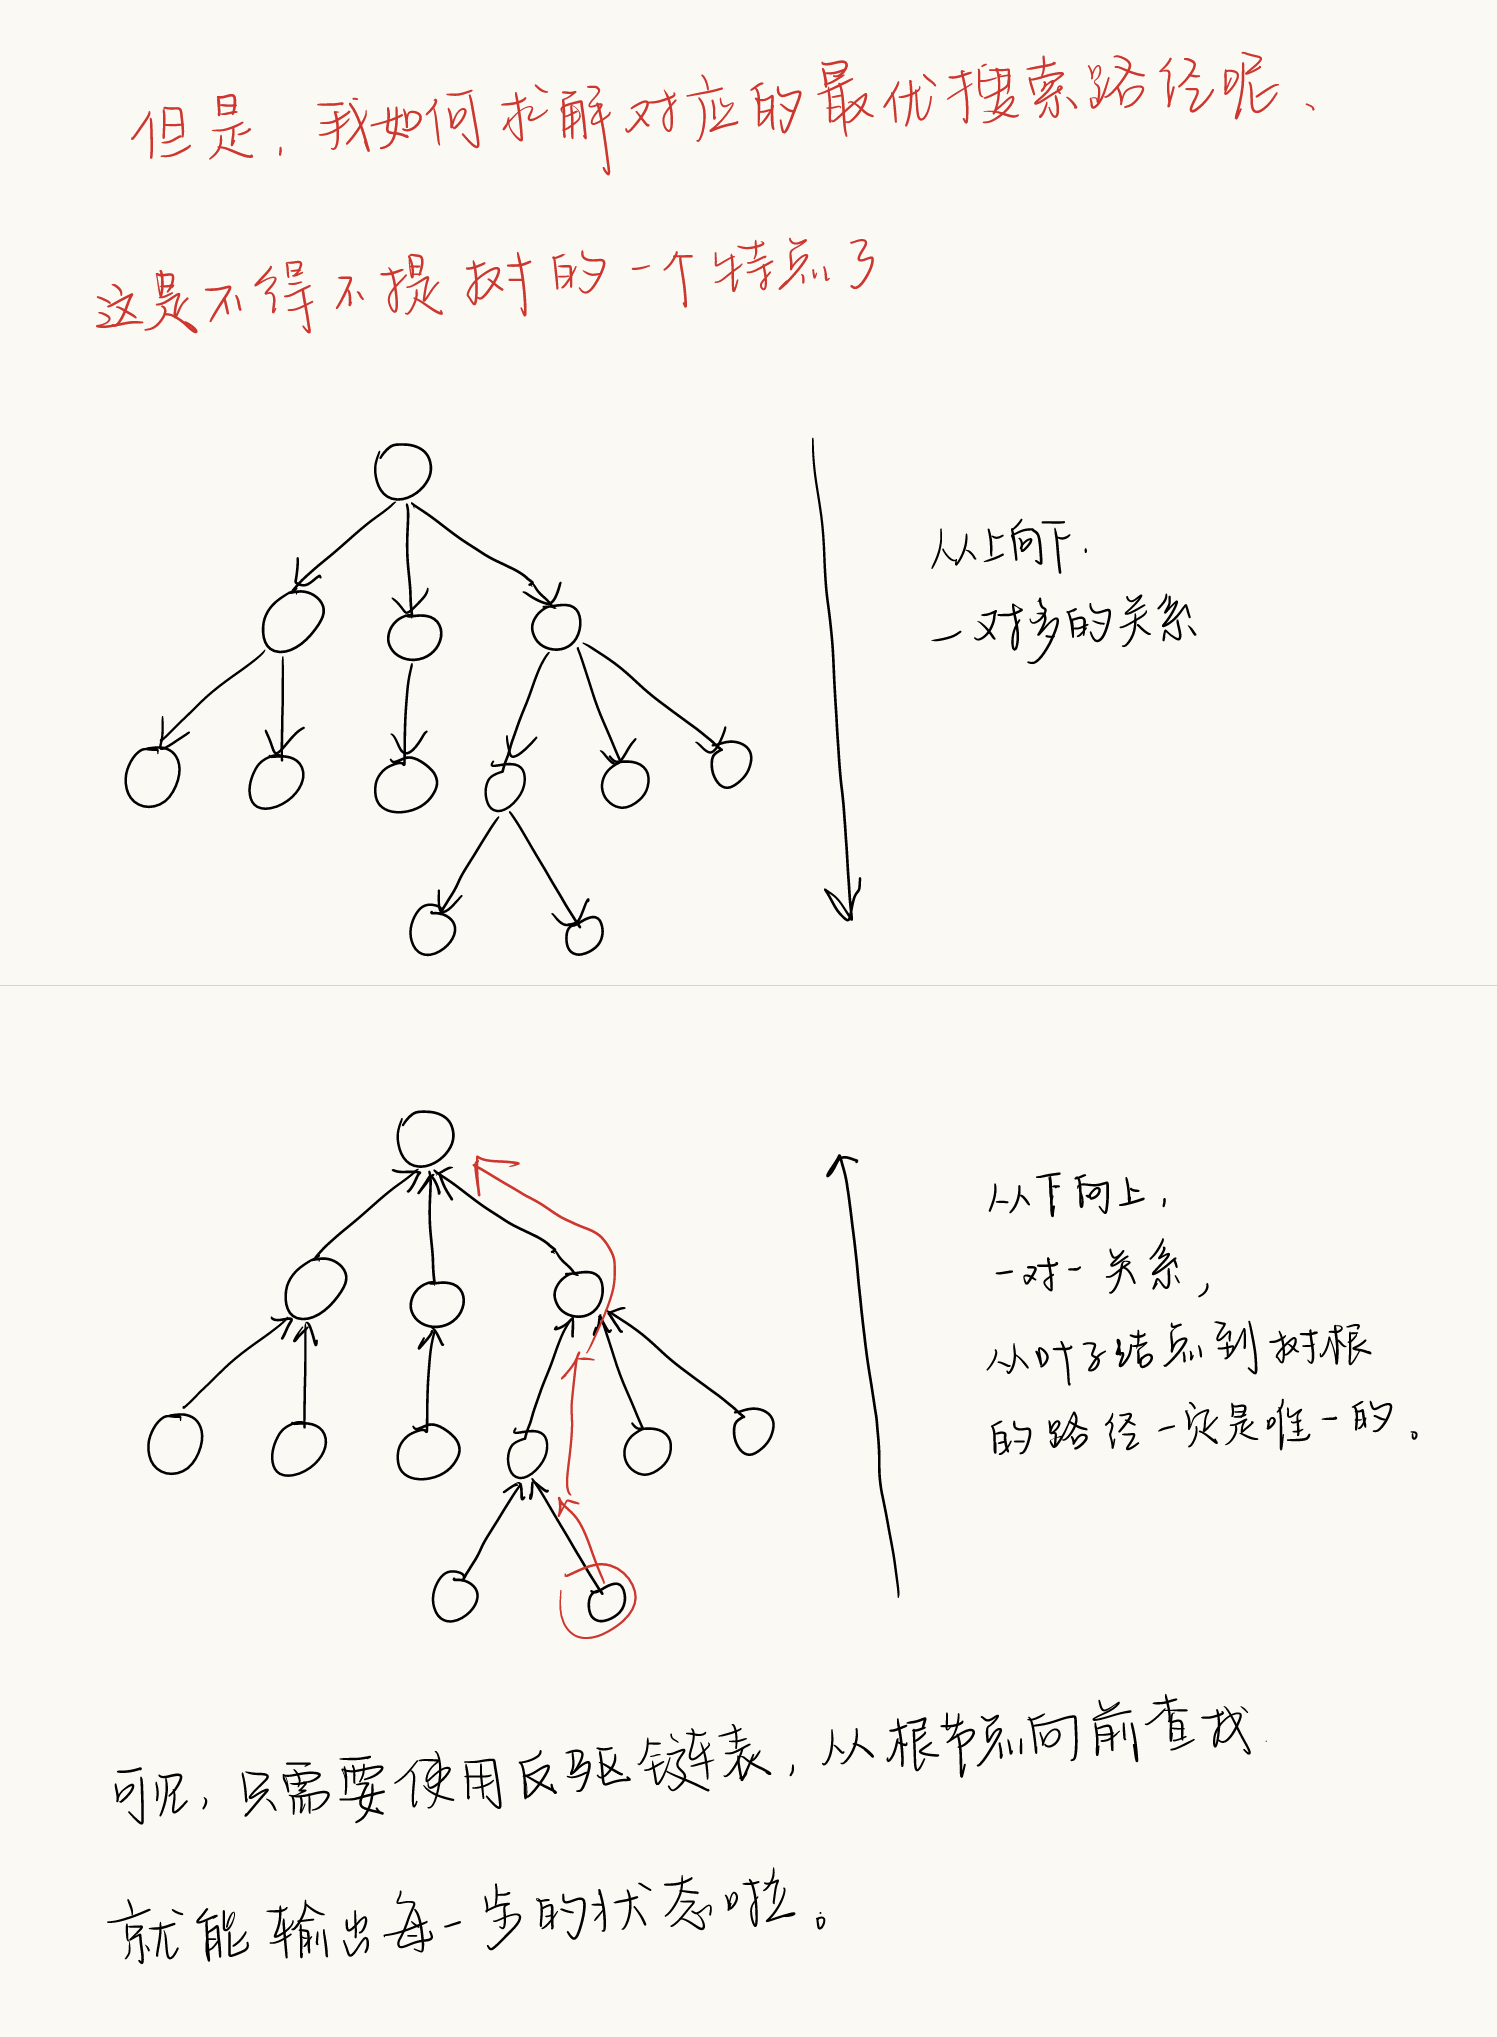 但是，我如何求解对应的最优搜索路径呢、
这是不得不提树的一个特点了
从上向下.
一对多的关系
从下向上，
一对一关系，
从叶子结点到树根
的路径一定是唯一的。
可见，只需要使用反驱链表，从根节点向前查找.
就能输出每一步的状态啦。